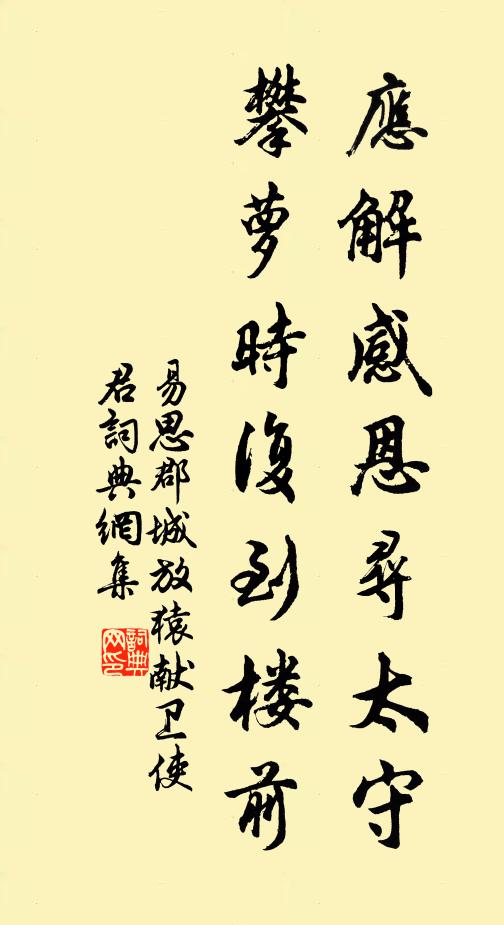 應解感恩尋太守
攀萝時復到楼前
易思郡城放猿献卫使
君詞典網集
詞典网印